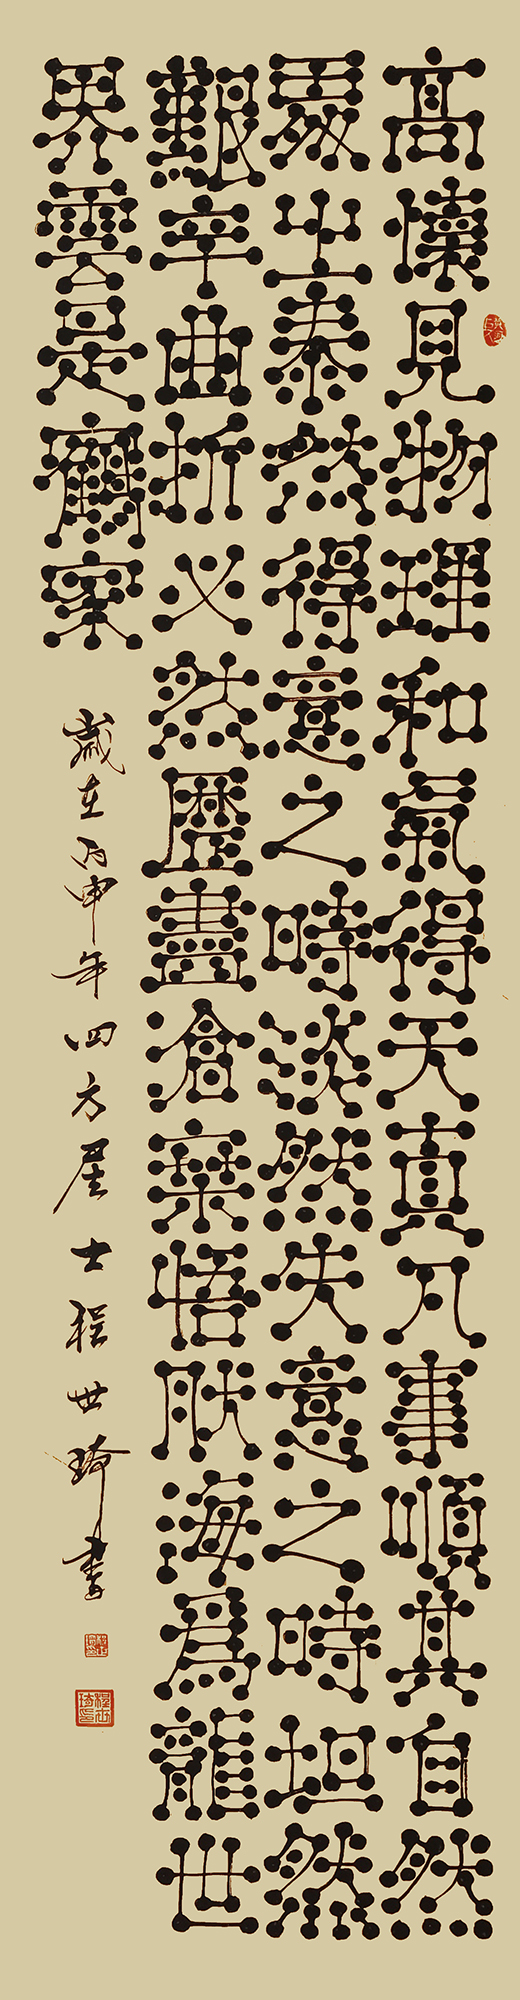 高懷見物理和氣得天真凡事順其自然
之泰然得意之時淡然失意之時坦然
艱辛曲折必然歷盡滄桑悟肰海為龍世
界雲是鶴家
歲在丙申年四方居士程世琦書
程世琦印